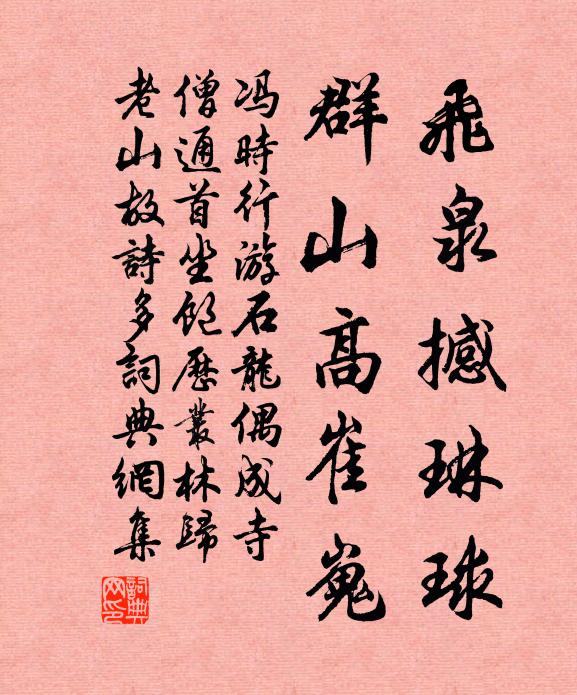 飛泉撼琳球
群山高崔嵬
馮時行游石龍偶成寺
僧通首坐飽歷叢林歸
老山故詩多詞典網集
詞典網印